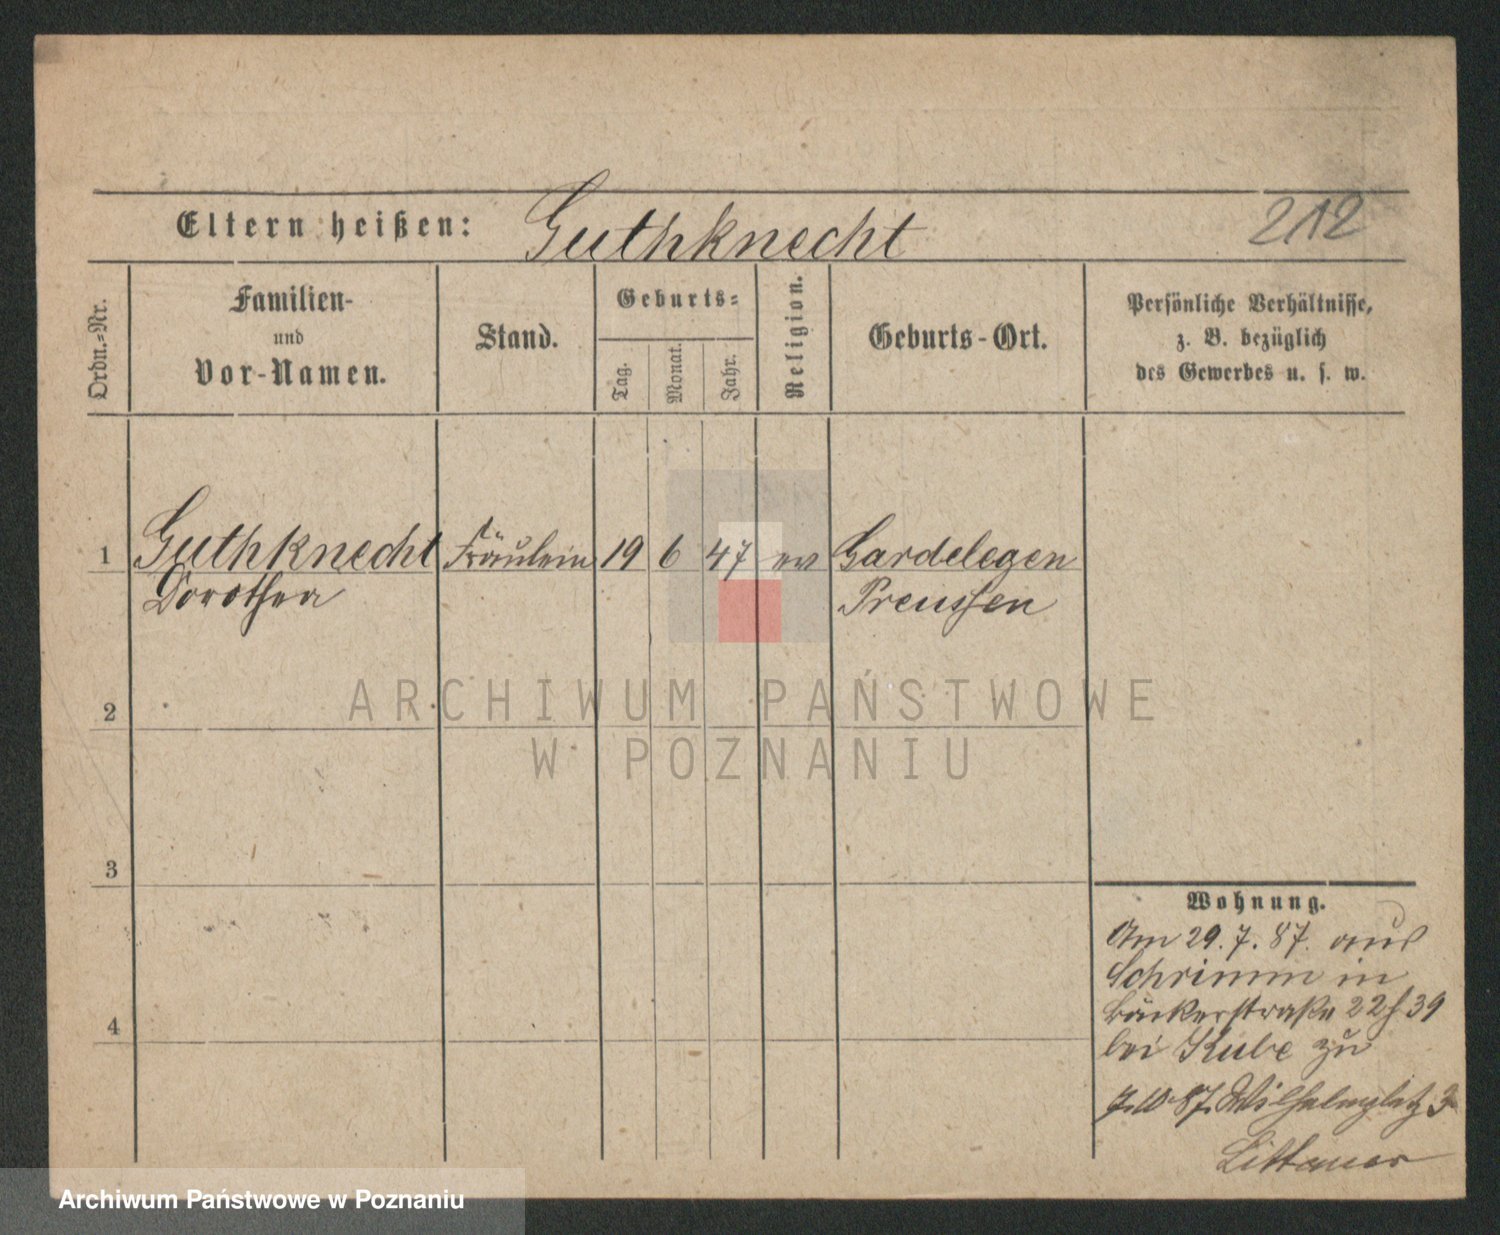 Eltern heißen: Guthknecht 212
Ordn.-Nr.
Familien-
und
Vor-Namen.
Stand.
Geburts-
Tag.
Monat.
Jahr.
Religion.
Geburts-Ort.
Persönliche Verhältnisse,
z. B. bezüglich
des Gewerbes u. s. w.
1 Guthknecht Fräulein 19 6 47 ev Gardelegen
Dorothea Preussen
ARCHIWUM PAŃSTWOWE
W POZNANIU
2
3
4
Wohnung.
Am 29.7.87. aus
Schrimm in
Bäckerstraße 22 39
bei Kube zu
7.10.87. Wilhelmplatz 3
Littauer
Archiwum Państwowe w Poznaniu